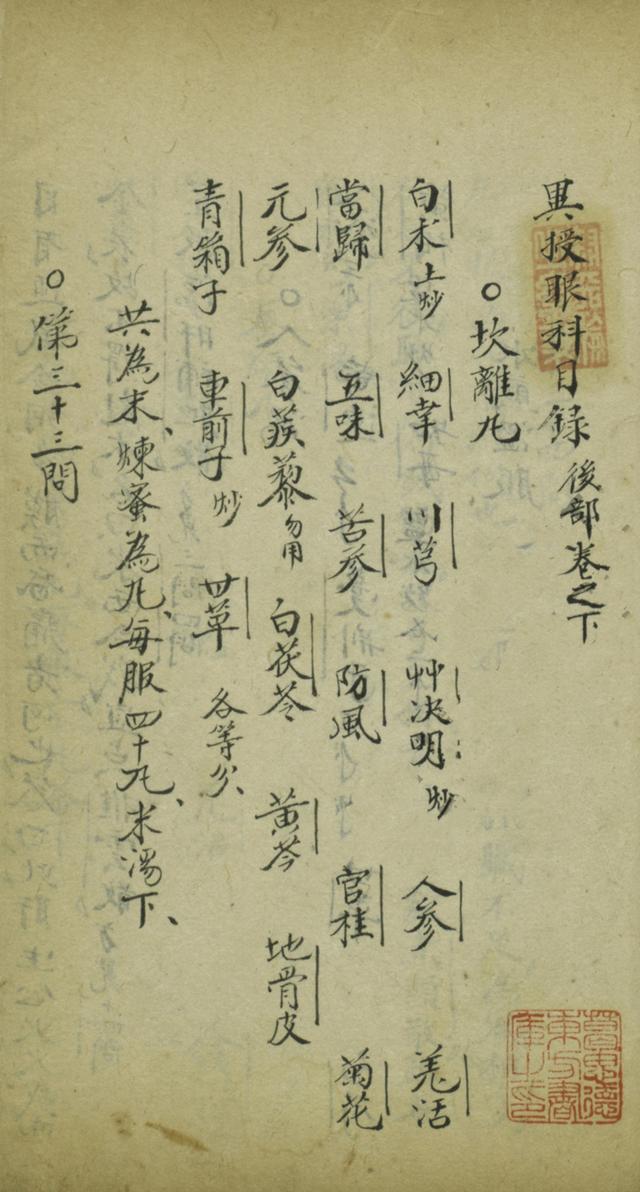 異授眼科目錄 後部卷之下
○坎離丸
白术 土炒 細辛 川芎 艸决明 炒 人參 羗活
當歸 五味 苦參 防風 官桂 菊花
元參 白蒺藜 勿用 白茯苓 黃芩 地骨皮
青箱子 車前子 炒 甘草 各等分
共為末、煉蜜為丸、每服四十丸、米湯下、
○第三十三問